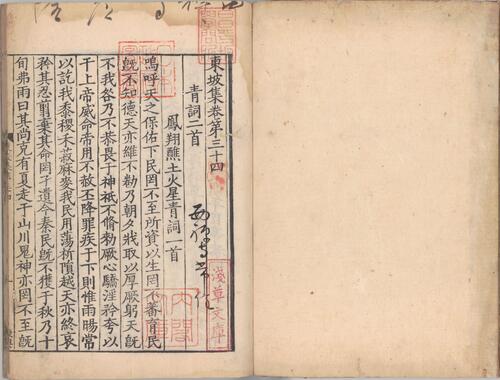 東坡集卷第三十四
青詞二首
鳳翔醮土火星青詞一首
嗚呼天之保佑下民罔不至所資以生罔不蕃育民
旣不知德天亦維不勑乃朝夕戕取以厚厥躬天旣
不我咎乃不恭畏于神祇不脩勑厥心驕淫矜夸以
干上帝威命帝用不赦丕降罪疾于下則惟雨暘常
以訖我黍稷未救麻麥我民用蕩析隕越天亦終哀
矜其忍翦棄其命罔孑遺今秦民旣不獲于秋乃十
旬弗雨曰其尚克有夏走于山川鬼神亦罔不至旣
淺草文庫